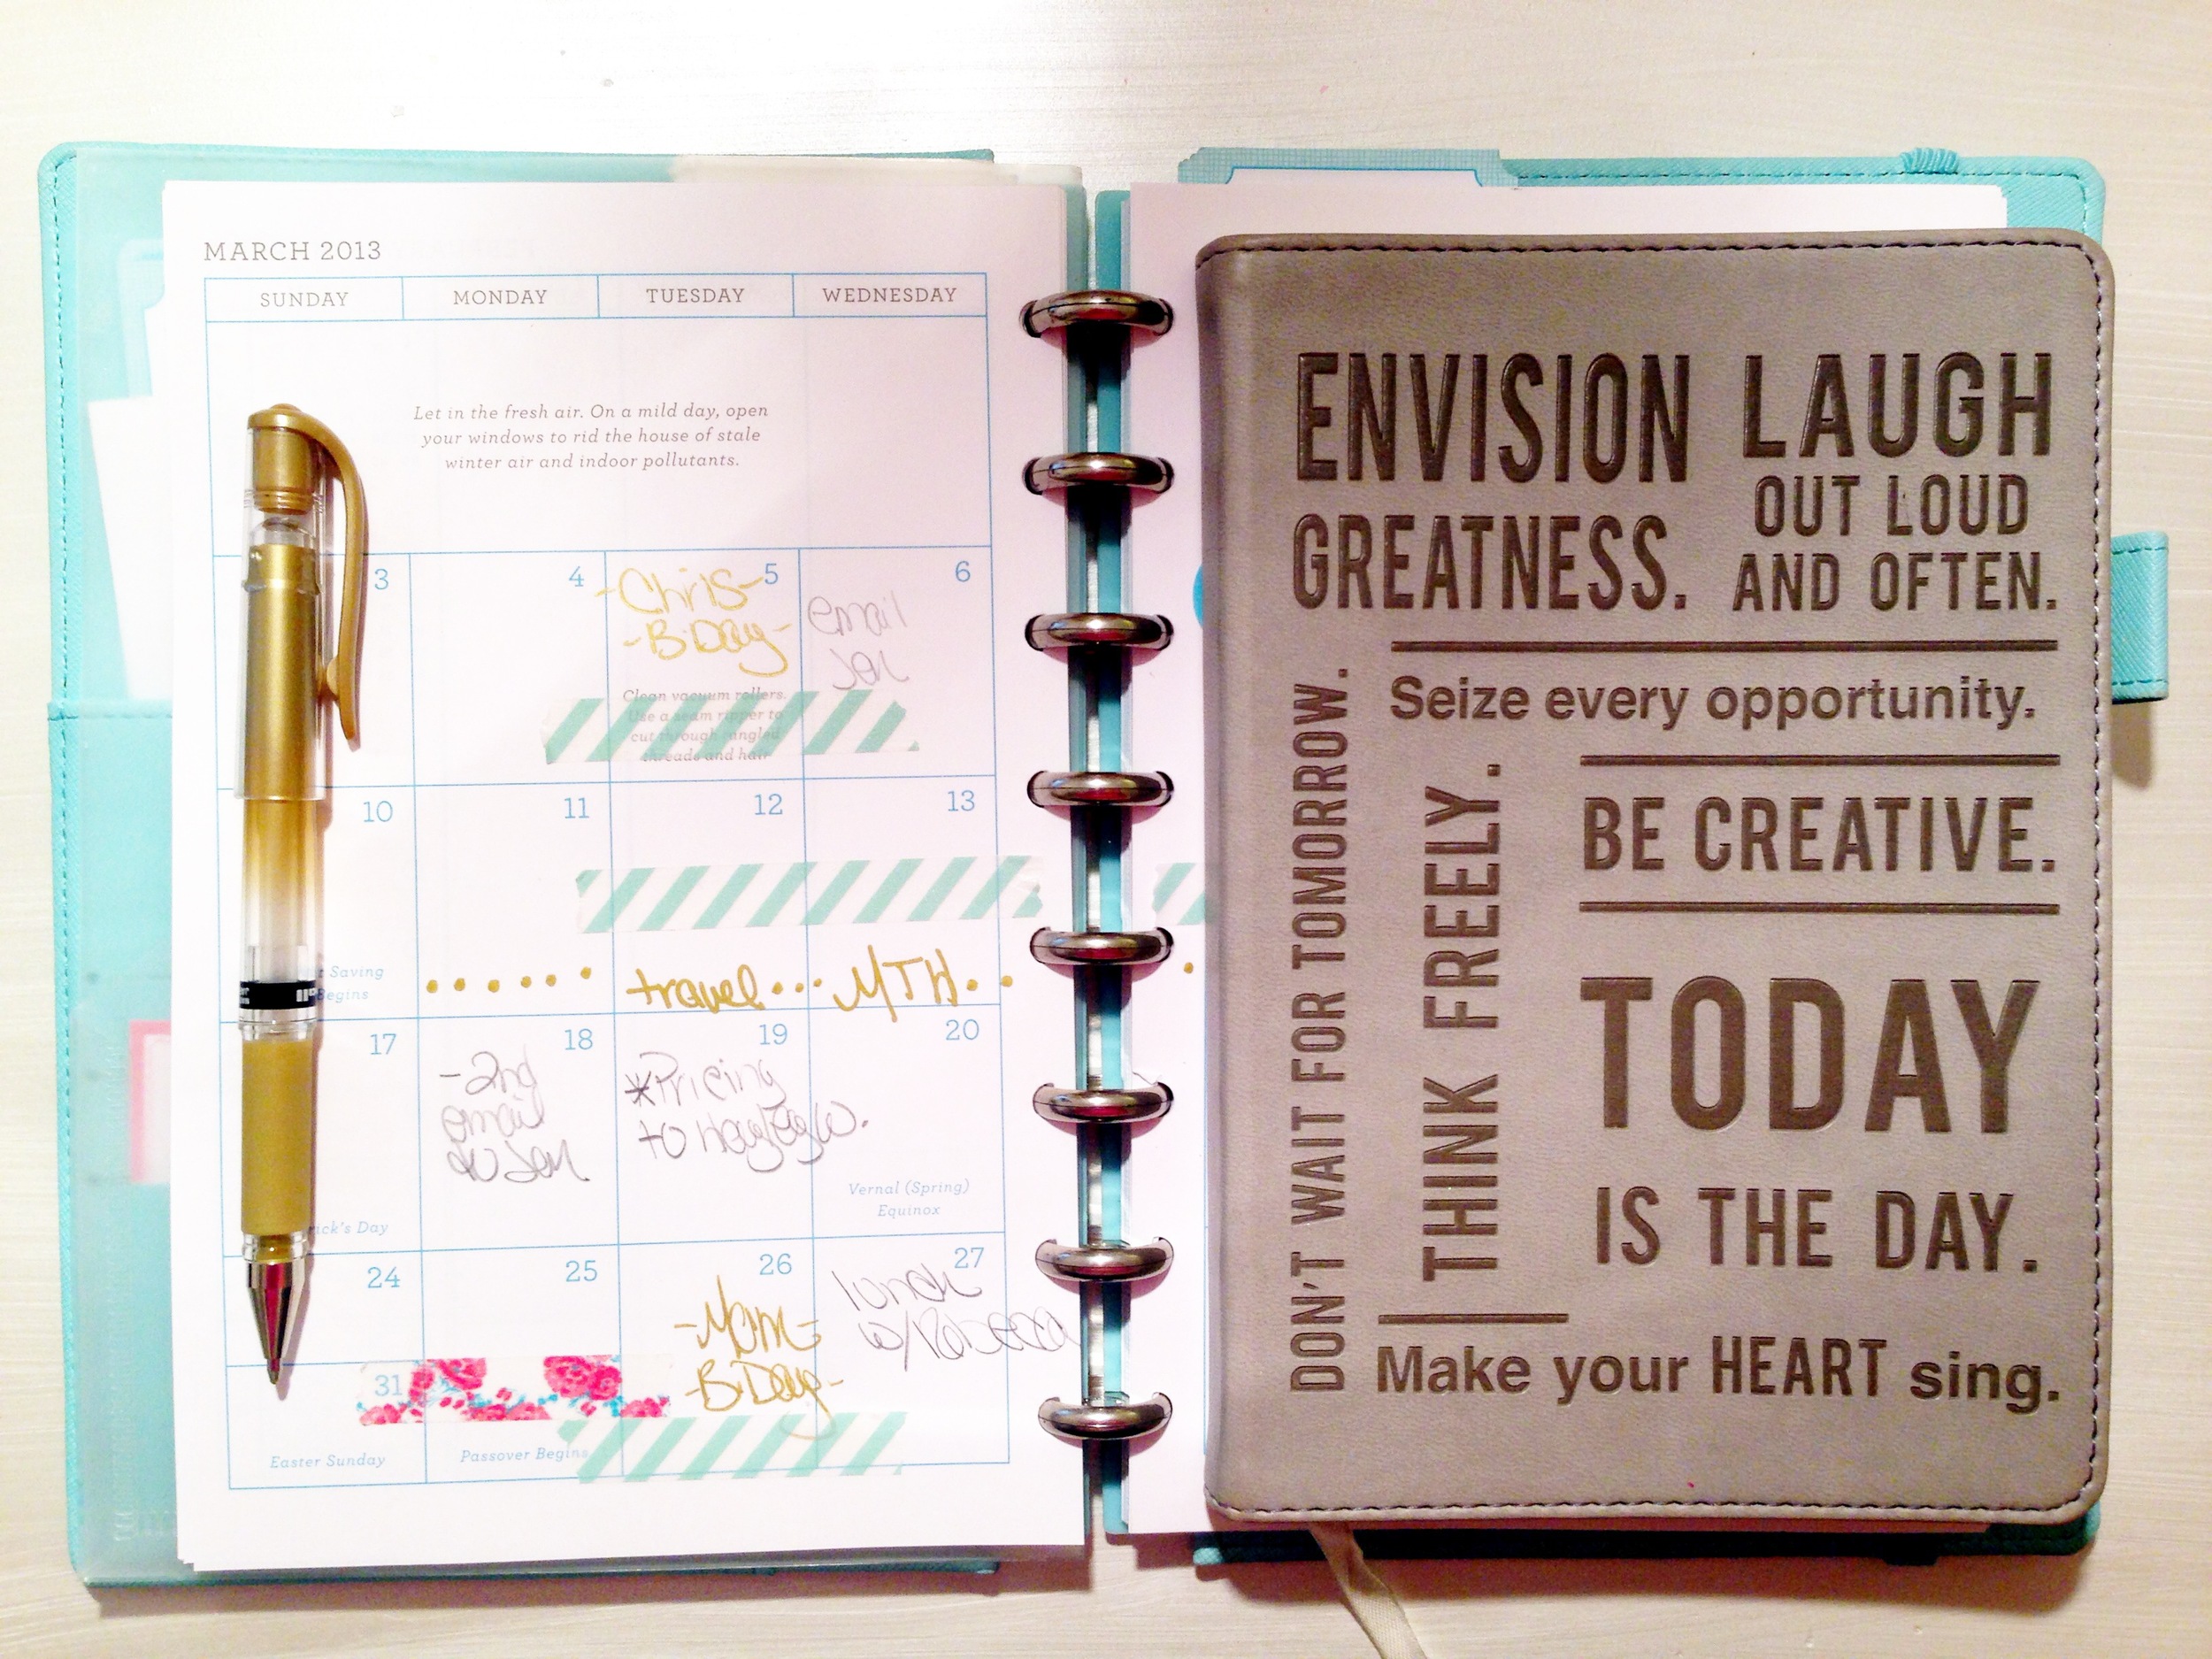 MARCH 2013
SUNDAY MONDAY TUESDAY WEDNESDAY
Let in the fresh air. On a mild day, open
your windows to rid the house of stale
winter air and indoor pollutants.
3 4 5 6
-Chris-
-B-Day-
email
Jen
Clean vacuum rollers.
Use a seam ripper to
cut through tangled
threads and hair
10 11 12 13
Saving
Begins
travel... MTH..
17 18 19 20
-2nd
email
to Jen
*Pricing
to
Vernal (Spring)
Equinox
ick's Day
24 25 26 27
-Mom-
-B-Day-
lunch
w/Rebecca
31
Easter Sunday
Passover Begins
ENVISION
GREATNESS.
LAUGH
OUT LOUD
AND OFTEN.
DON'T WAIT FOR TOMORROW.
THINK FREELY.
Seize every opportunity.
BE CREATIVE.
TODAY
IS THE DAY.
Make your HEART sing.